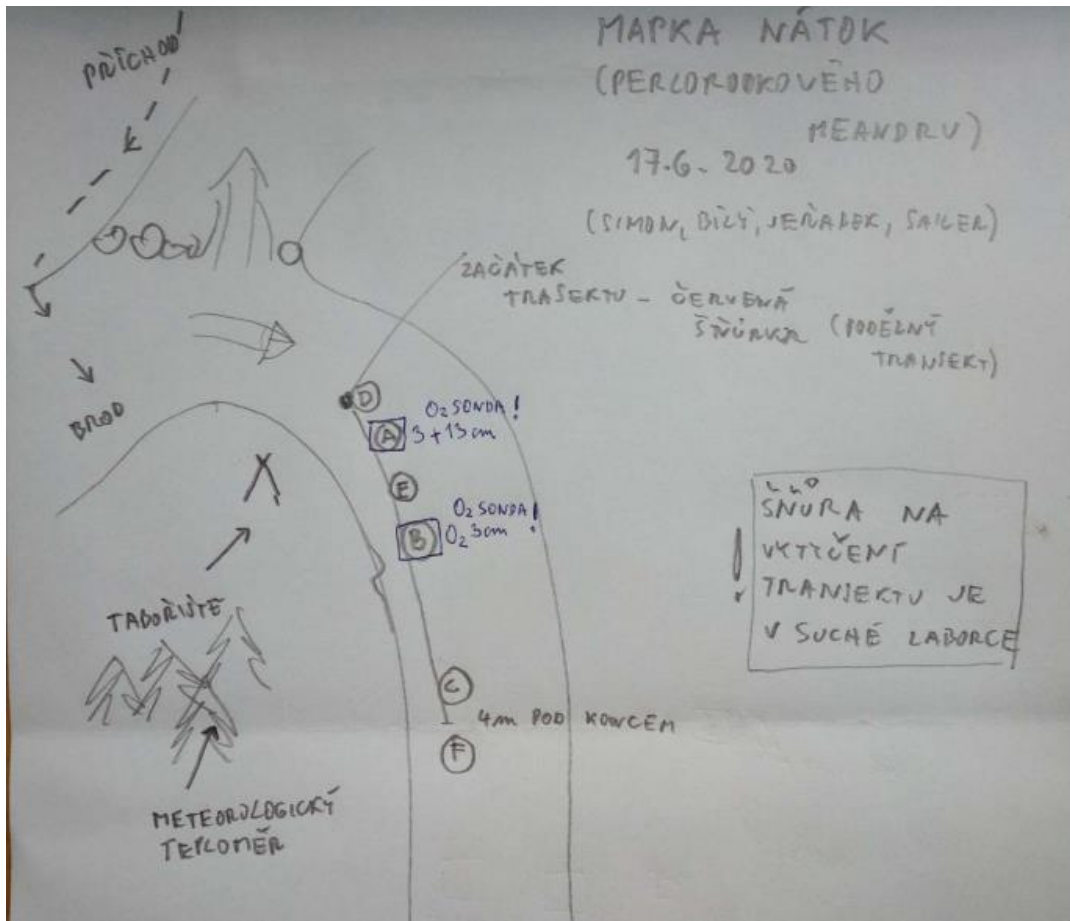 MAPKA NÁTOK
(PERLOROOKOVÉHO
MEANDRU)
17.6. 2020
(SIMON, BÍLÝ, JEŘÁBEK, SAILER)
PŘÍCHOD
K
ZAČÁTEK
TRASEKTU - ČERVENÁ
ŠŇŮRKA (PODÉLNÝ
TRANSEKT)
BROD
D
O2 SONDA!
A 3+13cm
E
O2 SONDA!
B O2 3cm
TABOŘIŠTĚ
C
4m POD KONCEM
F
METEOROLOGICKÝ
TEPLOMĚR
ŠŇŮRA NA
VYTYČENÍ
! TRANSEKTU JE
V SUCHÉ LABORCE